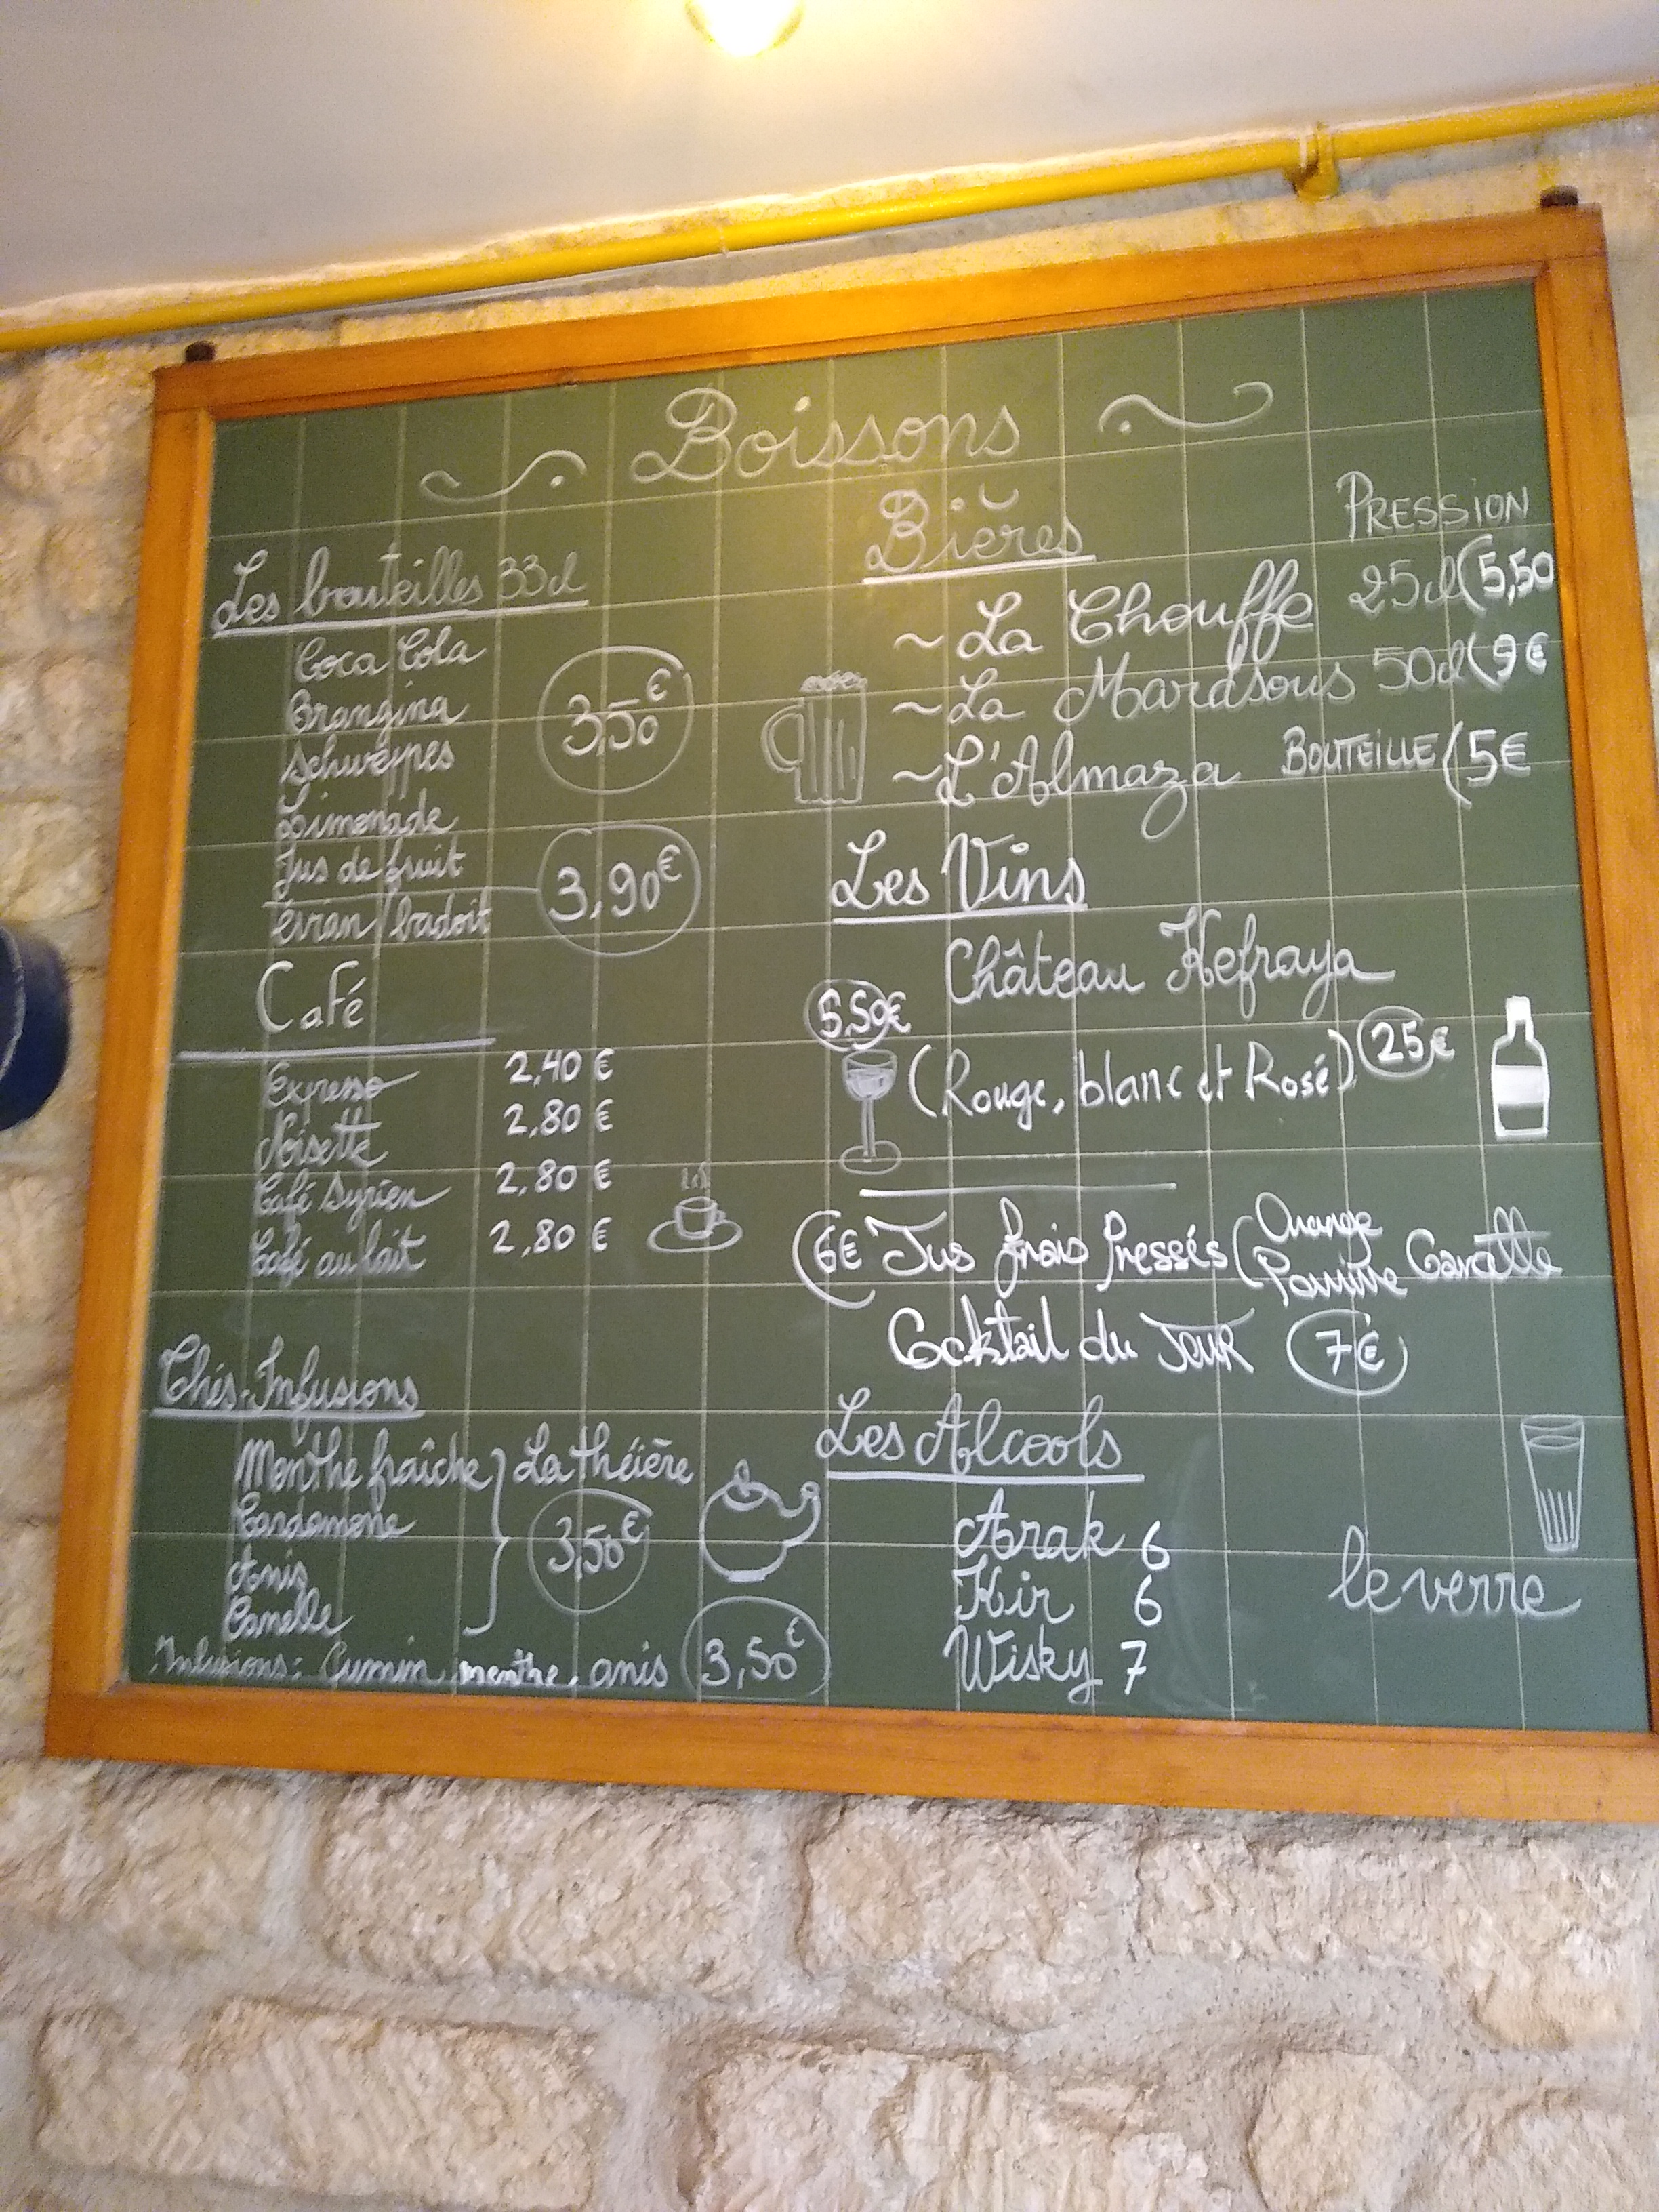 Boissons
Les bouteilles 33cl
Coca Cola
Orangina
Schweppes
3,50€
Limonade
Jus de fruit
évian / badoit
3,90€
Café
Expresso 2,40 €
Noisette 2,80 €
Café Syrien 2,80 €
Café au lait 2,80 €
Thés-Infusions
Menthe fraîche
Cardamone
Anis
Canelle
La théière
3,50€
Infusions: Cumin, menthe, anis 3,50€
Bières
PRESSION
~La Chouffe 25cl (5,50
~La Mardsous 50cl (9€
~L'Almaza BOUTEILLE (5€
Les Vins
Château Kefraya
5,50€
(Rouge, blanc et Rosé) 25€
(6€ Jus frais Pressés (Orange
Pomme Carotte
Cocktail du JOUR 7€
Les Alcools
Arak 6
Kir 6
Wisky 7
le verre